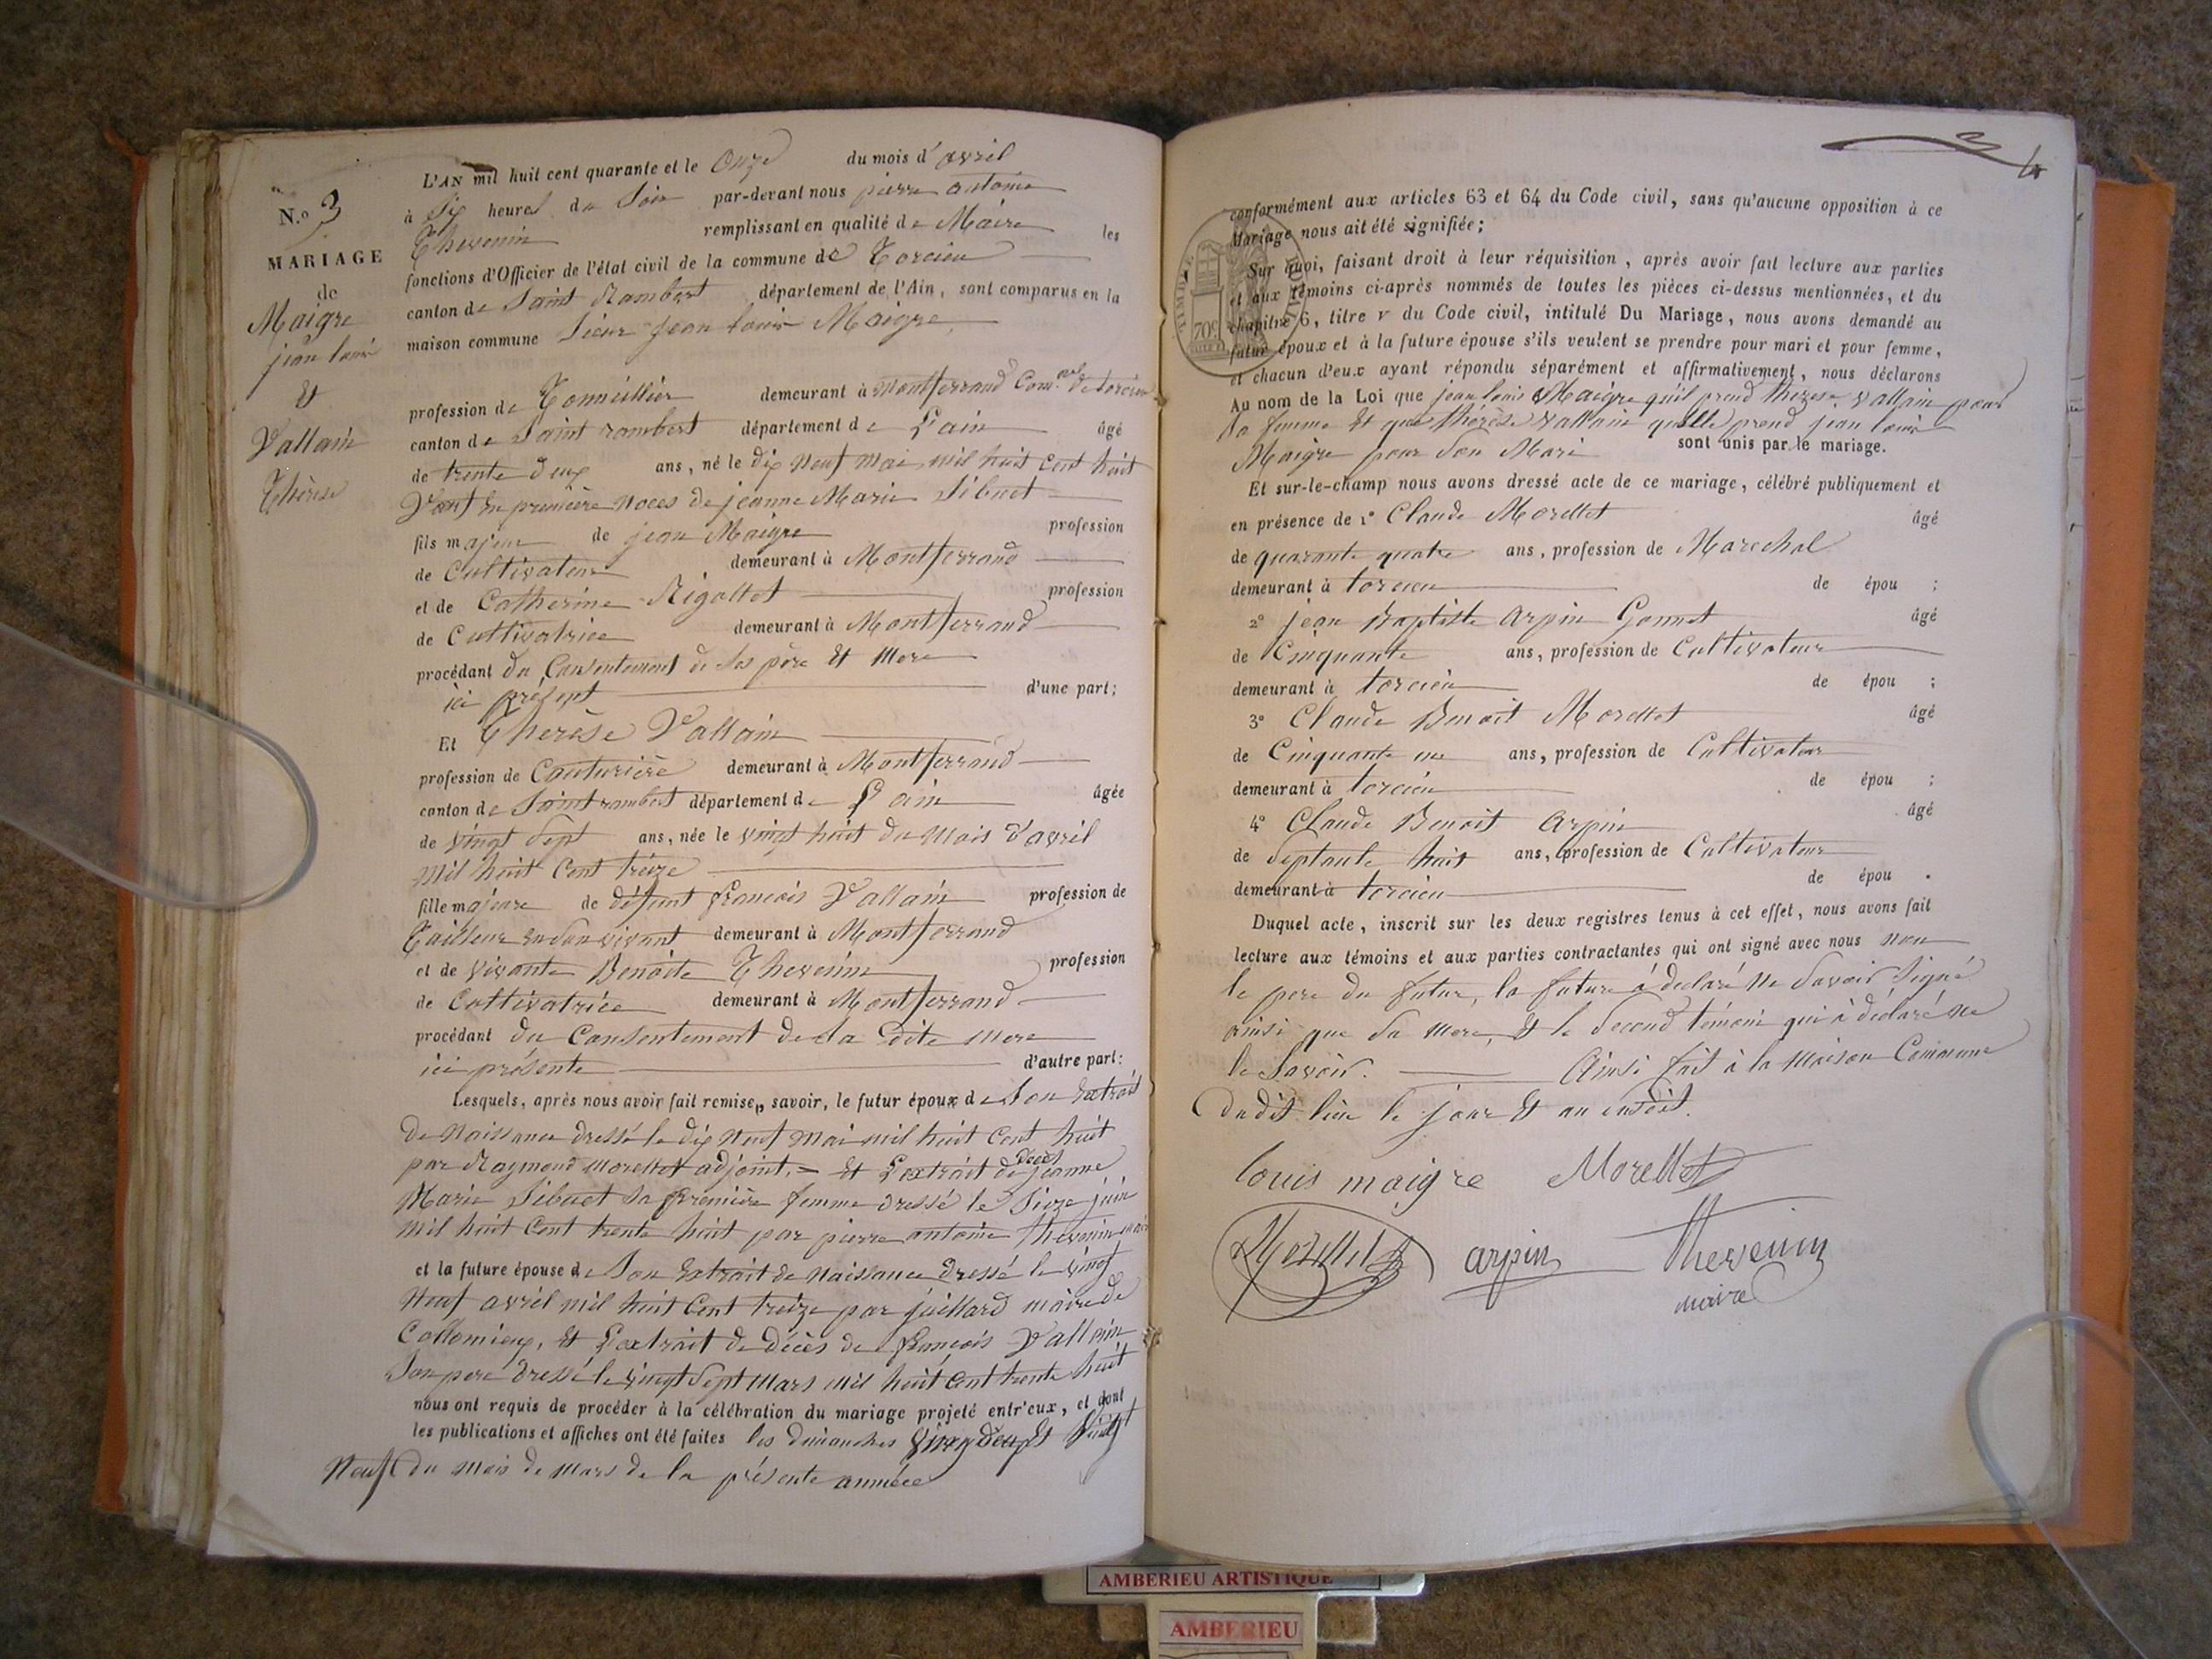 N.o 3
MARIAGE
de
Maigre
jean louis
Et
Vallain
Thérèse
L'AN mil huit cent quarante et le Onze du mois d'avril
à Six heures du Soir par-devant nous pierre antoine
Thevenin remplissant en qualité de Maire les
fonctions d'Officier de l'état civil de la commune de Torcieu
canton de Saint Rambert département de l'Ain, sont comparus en la
maison commune Sieur jean louis Maigre
profession de Tonnellier demeurant à Montferrand Com.ne de torcieu
canton de Saint rambert département de L'ain âgé
de trente deux ans, né le dix Neuf Mai mil huit Cent huit
Veuf En première Noces de jeanne Marie Sibuet
fils majeur de jean Maigre profession
de Cultivateur demeurant à Montferrand
et de Catherine Rigollet profession
de Cultivatrice demeurant à Montferrand
procédant du Consentement de Ses père Et Mere
ici présent d'une part;
Et Therèse Vallain
profession de Couturière demeurant à Montferrand
canton de Saint rambert département de L'ain âgée
de vingt Sept ans, née le vingt huit du Mois d'avril
Mil huit Cent treize
fille majeure de défunt françois Vallain profession de
Tailleur En Son vivant demeurant à Montferrand
et de vivante Benoite Thevenin profession
de Cultivatrice demeurant à Montferrand
procédant du Consentement de Sa dite Mere
ici présente d'autre part:
Lesquels, après nous avoir fait remise, savoir, le futur époux de Son Extrait
De Naissance dressé le dix Neuf Mai mil huit Cent huit
par Raymond Morellet adjoint. = Et L'extrait de décès jeanne
Marie Sibuet Sa première femme dressé le Sieze juin
Mil huit Cent trente huit par pierre antoine thevenin maire
et la future épouse de Son Extrait de Naissance dressé le vingt
Neuf avril mil huit Cent treize par juillard maire de
Collomieux, Et L'extrait de Décès de françois Vallain
Son pere dressé le vingt Sept Mars mil huit Cent trente huit
nous ont requis de procéder à la célébration du mariage projeté entr'eux, et dont
les publications et affiches ont été faites les dimanches Vingt deux Et Vingt
Neuf du Mois de Mars de la présente année
conformément aux articles 63 et 64 du Code civil, sans qu'aucune opposition à ce
Mariage nous ait été signifiée;
TIMBRE ROYAL
70c
Sur quoi, faisant droit à leur réquisition, après avoir fait lecture aux parties
et aux témoins ci-après nommés de toutes les pièces ci-dessus mentionnées, et du
chapitre 6, titre v du Code civil, intitulé Du Mariage, nous avons demandé au
futur époux et à la future épouse s'ils veulent se prendre pour mari et pour femme,
et chacun d'eux ayant répondu séparément et affirmativement, nous déclarons
Au nom de la Loi que jean louis Maigre qu'il prend thérèse vallain pour
Sa femme Et que thérèse vallain qu'Elle prend jean louis
Maigre pour Son Mari sont unis par le mariage.
Et sur-le-champ nous avons dressé acte de ce mariage, célébré publiquement et
en présence de 1° Claude Morellet âgé
de quarante quatre ans, profession de Marechal
demeurant à torcieu de épou ;
2° jean Baptiste arpin Gonnet âgé
de Cinquante ans, profession de Cultivateur
demeurant à torcieu de épou ;
3° Claude Benoit Morellet âgé
de Cinquante un ans, profession de Cultivateur
demeurant à torcieu de épou ;
4° Claude Benoit arpin âgé
de Septante huit ans, profession de Cultivateur
demeurant à torcieu de épou .
Duquel acte, inscrit sur les deux registres tenus à cet effet, nous avons fait
lecture aux témoins et aux parties contractantes qui ont signé avec nous non
le pere du futur, la future à déclaré Ne Savoir Signé
ainsi que Sa Mere, Et le Second témoin qui à déclaré Ne
le Savoir. Ainsi fait à la Maison Commune
dudit lieu le jour Et an susdit.
louis maigre Morellet
Morellet arpin thevenin
maire
AMBERIEU ARTISTIQUE
AMBERIEU